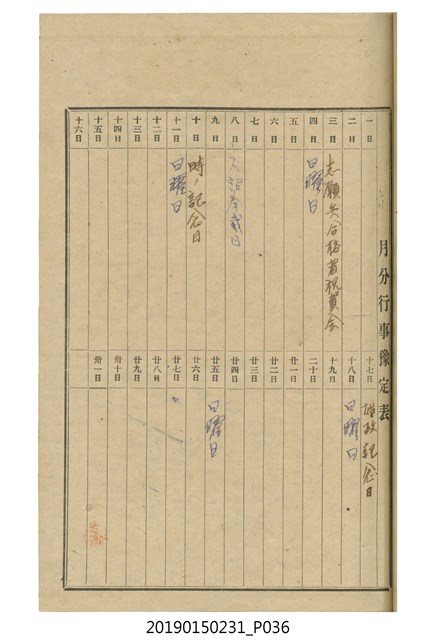 月分行事豫定表
一日
二日
三日 志願兵合格者祝賀会
四日 日曜日
五日
六日
七日
八日
九日
十日 時ノ記念日
十一日 日曜日
十二日
十三日
十四日
十五日
十六日
十七日 始政記念日
十八日 日曜日
十九日
二十日
廿一日
廿二日
廿三日
廿四日
廿五日 日曜日
廿六日
廿七日
廿八日
廿九日
卅十日
卅一日
20190150231_P036